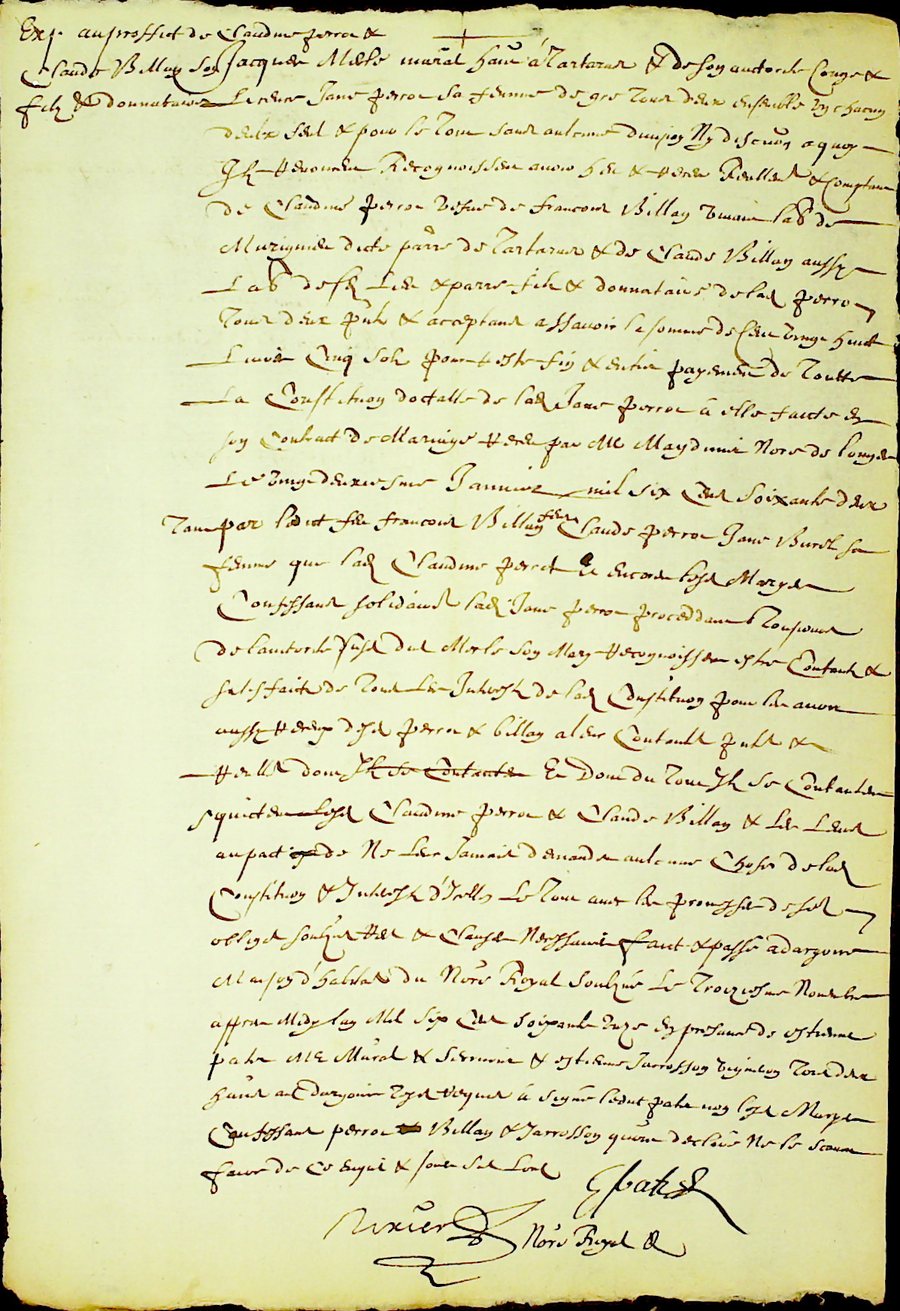 Exp. au proffict de Claudine perrot &
Claude Billay son Jacques Merle mural haūt à Tartaras & de son auctorite Conge &
filz & donnataire Licence Jane perrot sa femme de gre tous deux ensemble ung chacun
deulx seul & pour le tout sans aulcune division Ny discuōn a quoy
Ilz Renoncent Recognoissent avoir heu & Receu Reallem & Comptant
de Claudine perrot vefve de francois Billay vivant lab de
dicte parrẽ de Tartaras & de Claude Billay aussy
Lab desd Lieu & parre filz & donnataire de lad perrot
Tous deux pñts & acceptans assavoir la somme de Cent vingt huict
Livres Cinq solz pour Reste fin & entier payement de Toutte
La Constituōn doctalle de lad Jane perrot à elle faicte en
son Contract de Mariage Receu par Me Nore de
Le vingt deuxiesme Janvier mil six Cens soixante deux
Tant par ledict feu francois Billay Claude perrot Jane Burel sa
femme que lad Claudine perrot Et encores lesd Maryes
Confessans solidairet lad Jane perrot proceddant Tousjours
de lauctorite susd dud Merle son Mary Recognoissent estre Contantz &
satisfaictz de Tous Les Interestz de lad Constituōn pour les avoir
aussy Receus desd perrot & billay a leur Contante &
Reelle dont Ilz se Contantent Et Dont du Tout Ilz se Contantent
quictent lesd Claudine perrot & Claude Billay & Les Leurs
au pact de Ne Leur Jamais demander aulcune Chose de lad
Constituōn & Interestz d'Icelle Le Tout avec les promesses desd
oblige soubzmis Ren & Clauses Necessaires faict & passé a dargoire
Maison d'habitāt du Nore Royal soubzne Le Troiziesme Novembre
appres Midy lan Mil six Cens soixante unze en presance de estienne
patin Me Mural & & estienne Jarrosson vigneron Tous deux
haūts au Dargoire Requis à signé ledict patin non lesd Maryes
Confessans perrot Billay & Jarrosson quont declare Ne le scavoir
faire de Ce enquis &
E patin
Nore Royal &